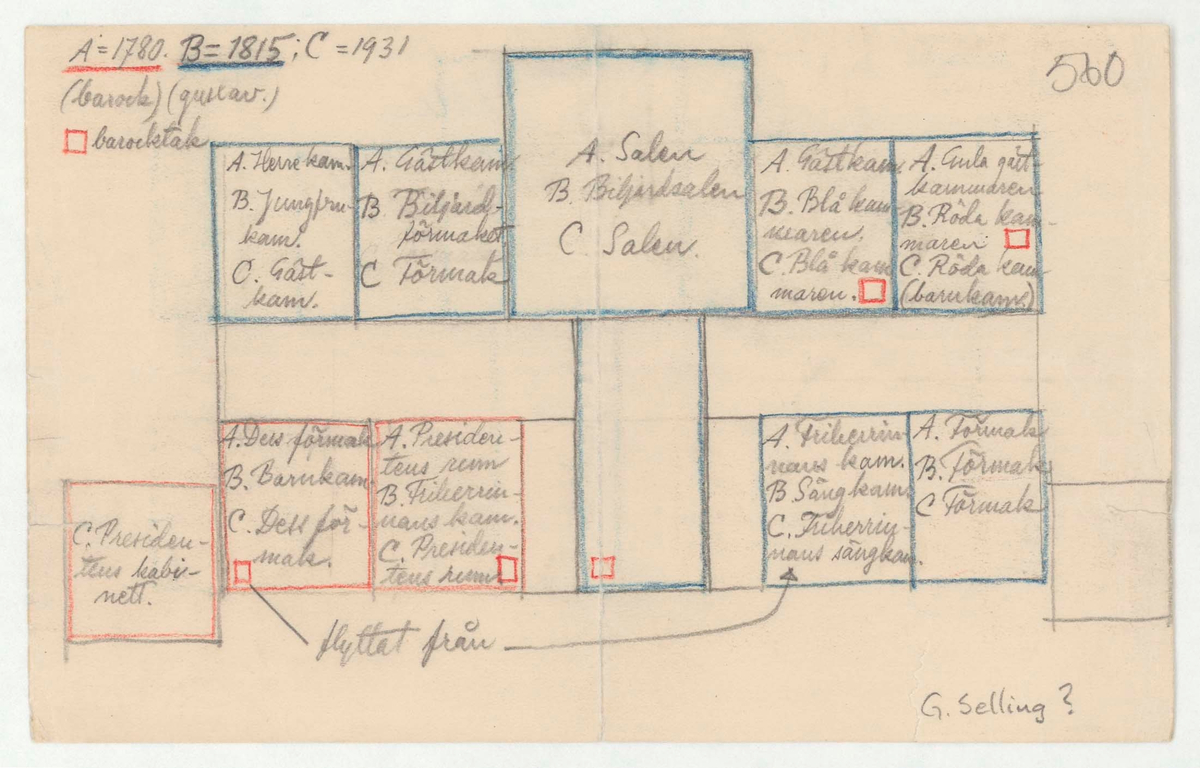 A = 1780. B = 1815; C = 1931
(barock) (gustav.)
barocktak
560
A. Herrekam.
B. Jungfru-
kam.
C. Gäst-
kam.
A. Gästkam
B Biljard-
förmaket
C Förmak
A. Salen
B Biljardsalen
C Salen.
A. Gästkam
B. Blå kam
maren.
C. Blå kam
maren.
A. Gula gäst-
kammaren
B. Röda kam-
maren
C. Röda kam
(barnkam.)
A. Dess förmak
B. Barnkam
C. Dess för-
mak.
A. Presiden-
tens rum
B. Friherrin-
nans kam.
C. Presiden-
tens rum
A. Friherrin
nans kam.
B. Sängkam.
C. Friherrin-
nans sängkam.
A. Förmak
B. Förmak
C Förmak
C. Presiden-
tens kabi-
nett.
flyttat från
G. Selling?